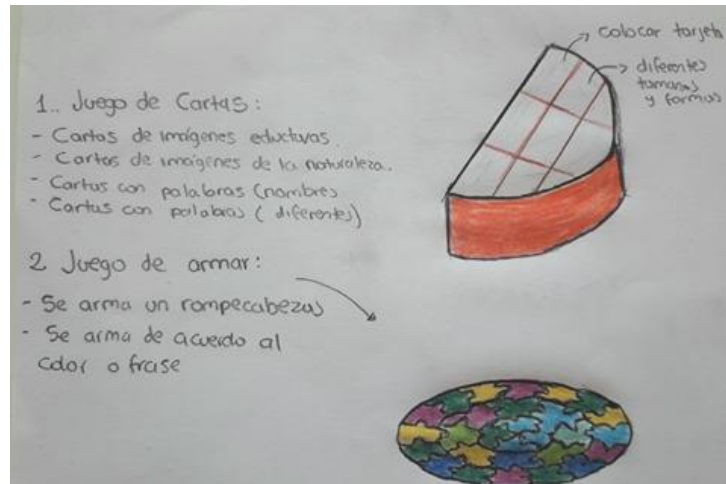 1.. Juego de Cartas:
- Cartas de imágenes eductivas.
- Cartas de imágenes de la naturaleza.
- Cartas con palabras (nombres
- Cartas con palabras ( diferentes)
2 Juego de armar:
- Se arma un rompecabezas
- Se arma de acuerdo al
color o frase
colocar tarjeta
diferentes
tamaños
y formas